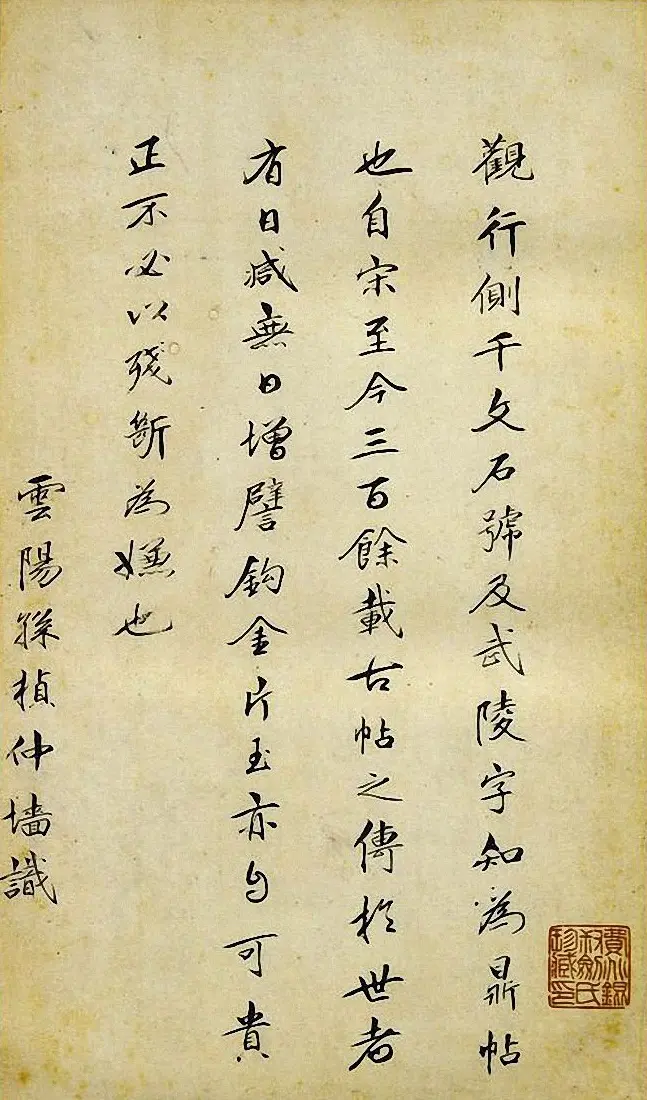 觀行側千文石號及武陵字知為鼎帖
也自宋至今三百餘載古帖之傳於世者
有日減無日增譬鈎金片玉亦自可貴
正不必以殘斷為嫌也
雲陽孫楨仲墻識